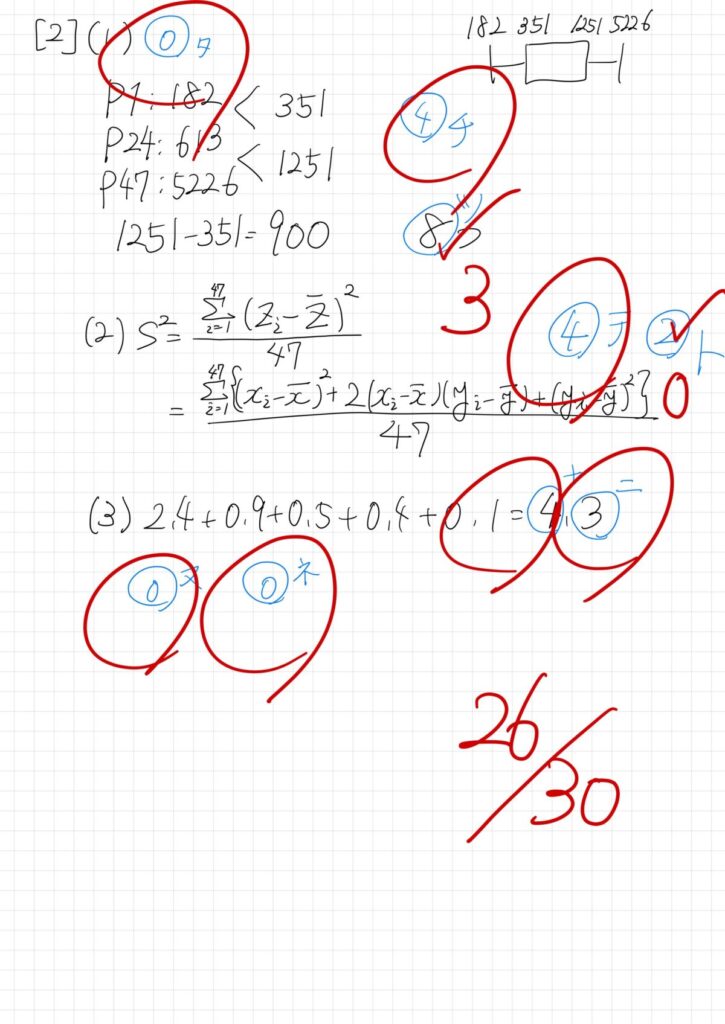 [2] (1) ⓪ タ
182 351 1251 5226
P1 : 182 < 351
④ チ
P24 : 613
P47 : 5226 < 1251
1251-351=900
⑧ ツ 3
(2) S²= Σ[i=1→47] (Zi-Z̄)² / 47
④ テ ② ト
= Σ[i=1→47] {(xi-x̄)²+2(xi-x̄)(yi-ȳ)+(yi-ȳ)²} / 47 0
(3) 2.4+0.9+0.5+0.4+0.1=④.③ ナ ニ
⓪ ヌ ⓪ ネ
26/30